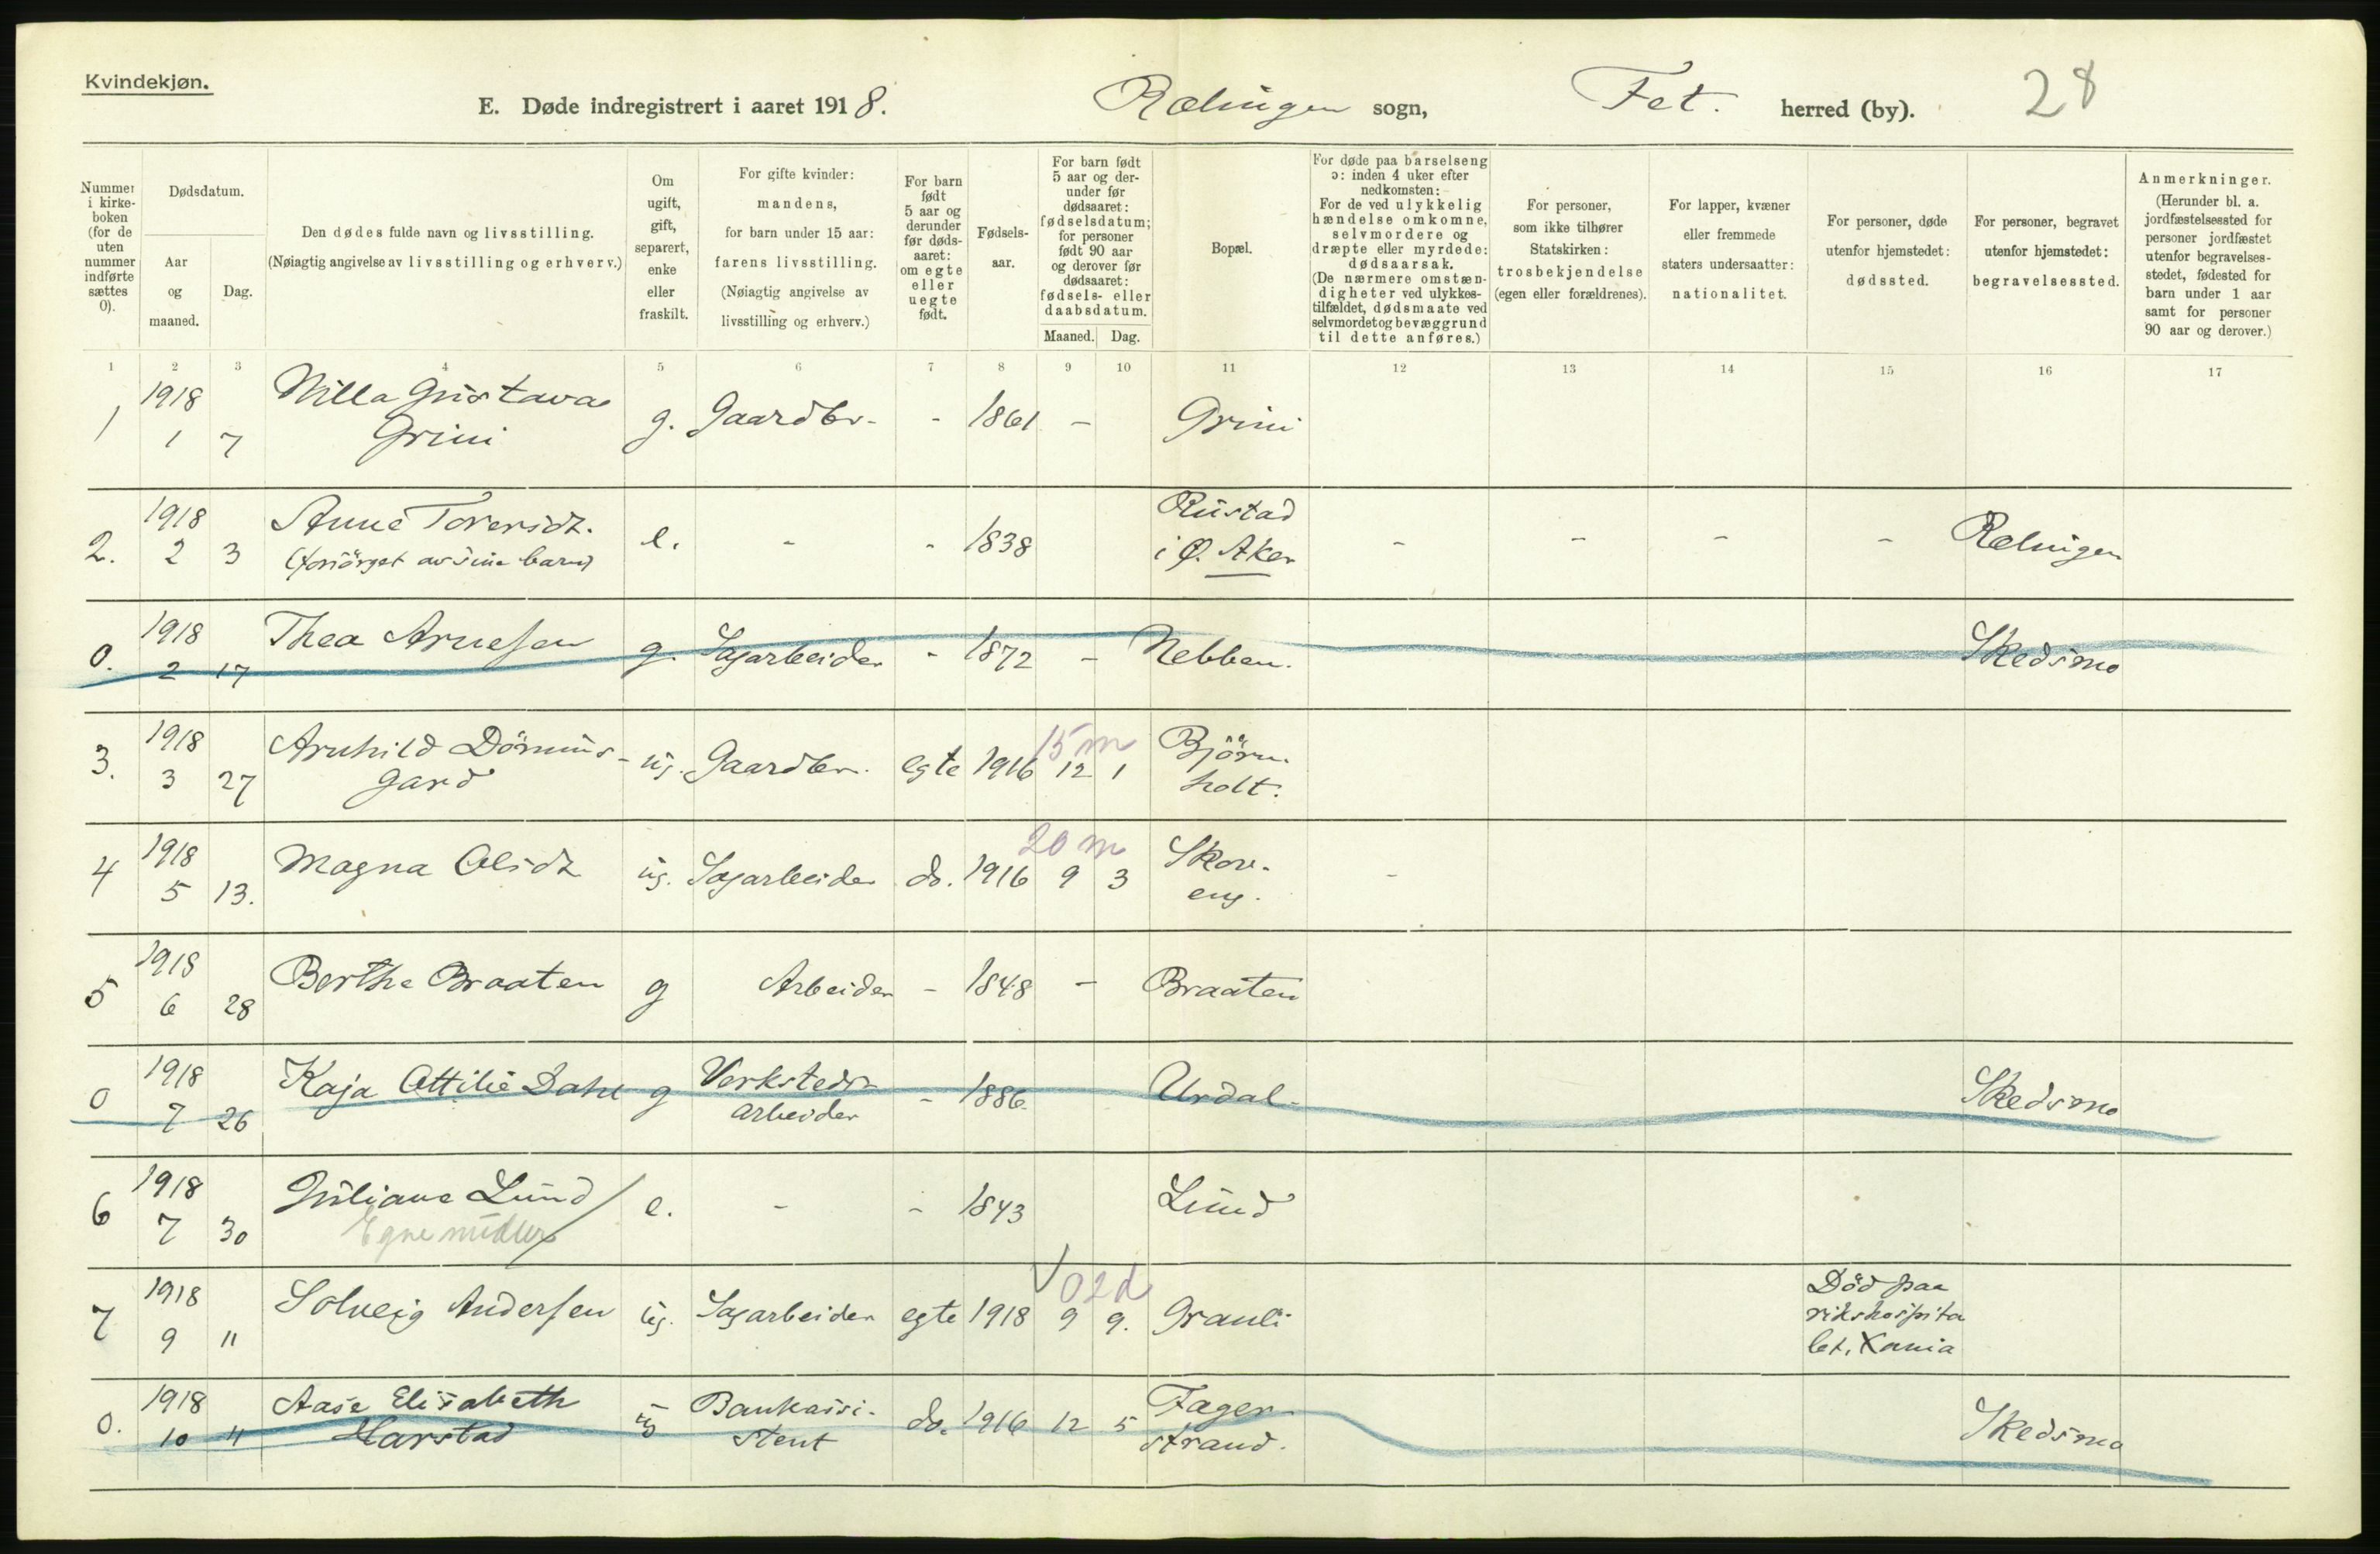 Kvindekjøn.
E. Døde indregistrert i aaret 1918. Rælingen sogn, Fet. herred (by). 28
Nummer i kirkeboken (for de uten nummer indførte sættes 0).
Dødsdatum.
Aar og maaned.
Dag.
Den dødes fulde navn og livsstilling.
(Nøiagtig angivelse av livsstilling og erhverv.)
Om ugift, gift, separert, enke eller fraskilt.
For gifte kvinder: mandens, for barn under 15 aar: farens livsstilling. (Nøiagtig angivelse av livsstilling og erhverv.)
For barn født 5 aar og derunder før dødsaaret: om egte eller uegte født.
Fødselsaar.
For barn født 5 aar og derunder før dødsaaret: fødselsdatum; for personer født 90 aar og derover før dødsaaret: fødsels- eller daabsdatum.
Maaned. Dag.
Bopæl.
For døde paa barselseng ɔ: inden 4 uker efter nedkomsten: For de ved ulykkelig hændelse omkomne, selvmordere og dræpte eller myrdede: dødsaarsak. (De nærmere omstændigheter ved ulykkestilfældet, dødsmaate ved selvmordet og bevæggrund til dette anføres.)
For personer, som ikke tilhører Statskirken: trosbekjendelse (egen eller forældrenes).
For lapper, kvæner eller fremmede staters undersaatter: nationalitet.
For personer, døde utenfor hjemstedet: dødssted.
For personer, begravet utenfor hjemstedet: begravelsessted.
Anmerkninger. (Herunder bl. a. jordfæstelsessted for personer jordfæstet utenfor begravelsesstedet, fødested for barn under 1 aar samt for personer 90 aar og derover.)
1 2 3 4 5 6 7 8 9 10 11 12 13 14 15 16 17
1 1918 Milla Gustava
1 7 Grini g. Gaardbr. - 1861 - Grini
2. 1918 Anne Toversdt. Rustad
2 3 (forsörget av sine barn) e. - - 1838 i Ø. Aker - - - - Rælingen
0. 1918 Thea Arnesen
2 17 g. Sagarbeider - 1872 - Nebben. Skedsmo
3. 1918 Arnhild Dömnis- 15 m Björn-
3 27 gard ug. Gaardbr. egte 1916 12 1 holt.
4 1918 Magna Olsdt 20 m Skov-
5 13. ug. Sagarbeider do. 1916 9 3 eng. -
5 1918 Berthe Braaten
6 28 g Arbeider - 1848 - Braaten
0 1918 Kaja Ottilie Dahl g Verksteds-
7 26 arbeider - 1886 Urdal Skedsmo
6 1918 Juliane Lund
7 30 Egne midler e. - - 1843 Lund
7 1918 Solveig Andersen 02d Död paa
9 11 ug. Sagarbeider egte 1918 9 9. Granli rikshospita
let, Xania
0. 1918 Aase Elisabeth Bankassi- Fager-
10 11 Harstad ug stent do. 1916 12 5 strand. Skedsmo